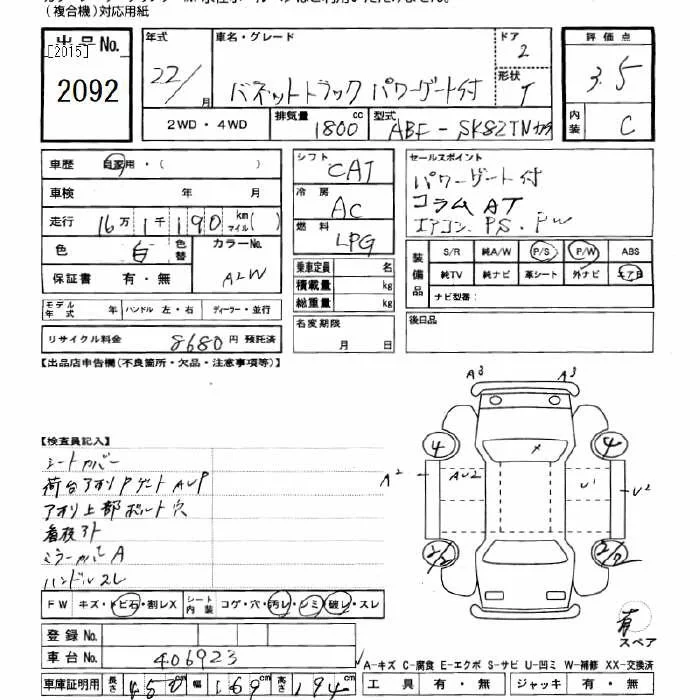 (複合機)対応用紙
出品No.
[2015]
2092
年式 22/ 月
車名・グレード バネットトラック パワーゲート付
ドア 2
形状 T
2WD・4WD
排気量 1800 cc
型式 ABF-SK82TN
評価点 3.5
内装 C
車歴 自家用・( )
車検 年 月
走行 16万1千190 km マイル( )
色 白 色替 カラーNo. A2W
保証書 有・無
モデル年式 年 ハンドル 左・右 ディーラー・並行
リサイクル料金 8680 円 預託済
シフト CAT
冷房 AC
燃料 LPG
乗車定員 名
積載量 kg
総重量 kg
名変期限
月 日
セールスポイント
パワーゲート付
コラムAT
エアコン.PS.PW
装備品
S/R 純A/W P/S P/W ABS
純TV 純ナビ 革シート 外ナビ エアB
ナビ型番:
後日品
【出品店申告欄(不良箇所・欠品・注意事項等)】
【検査員記入】
シートカバー
荷台アオリPゲートAUP
アオリ上部ボルト穴
看板アト
ミラーカバーA
ハンドルスレ
FW キズ・トビ石・割レX シート内装 コゲ・穴・汚レ・シミ・破レ・スレ
登録No.
車台No. 406923
車庫証明用 長さ 450 cm 幅 169 cm 高さ 194 cm
A3 A3
4 4
A2 AU2 X U1 U2
2/2 2/2
有
スペア
A-キズ C-腐食 E-エクボ S-サビ U-凹ミ W-補修 XX-交換済
工具 有・無 ジャッキ 有・無